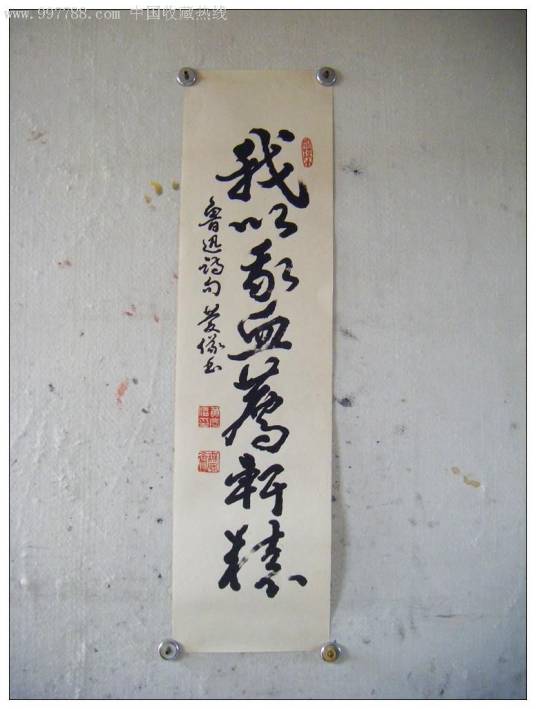 www.997788.com 中国收藏热线
我以我血薦軒轅
魯迅詩句 儀书